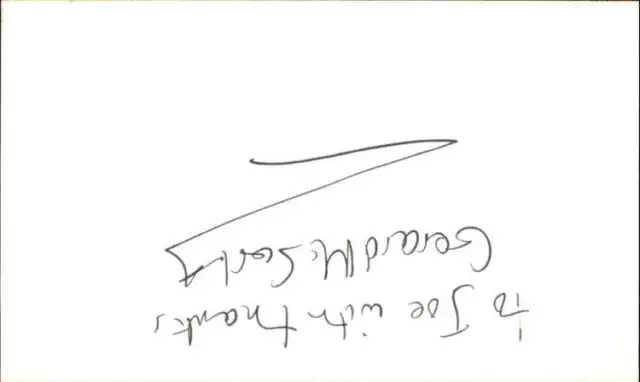 To Joe with thanks
Gerard McSorley